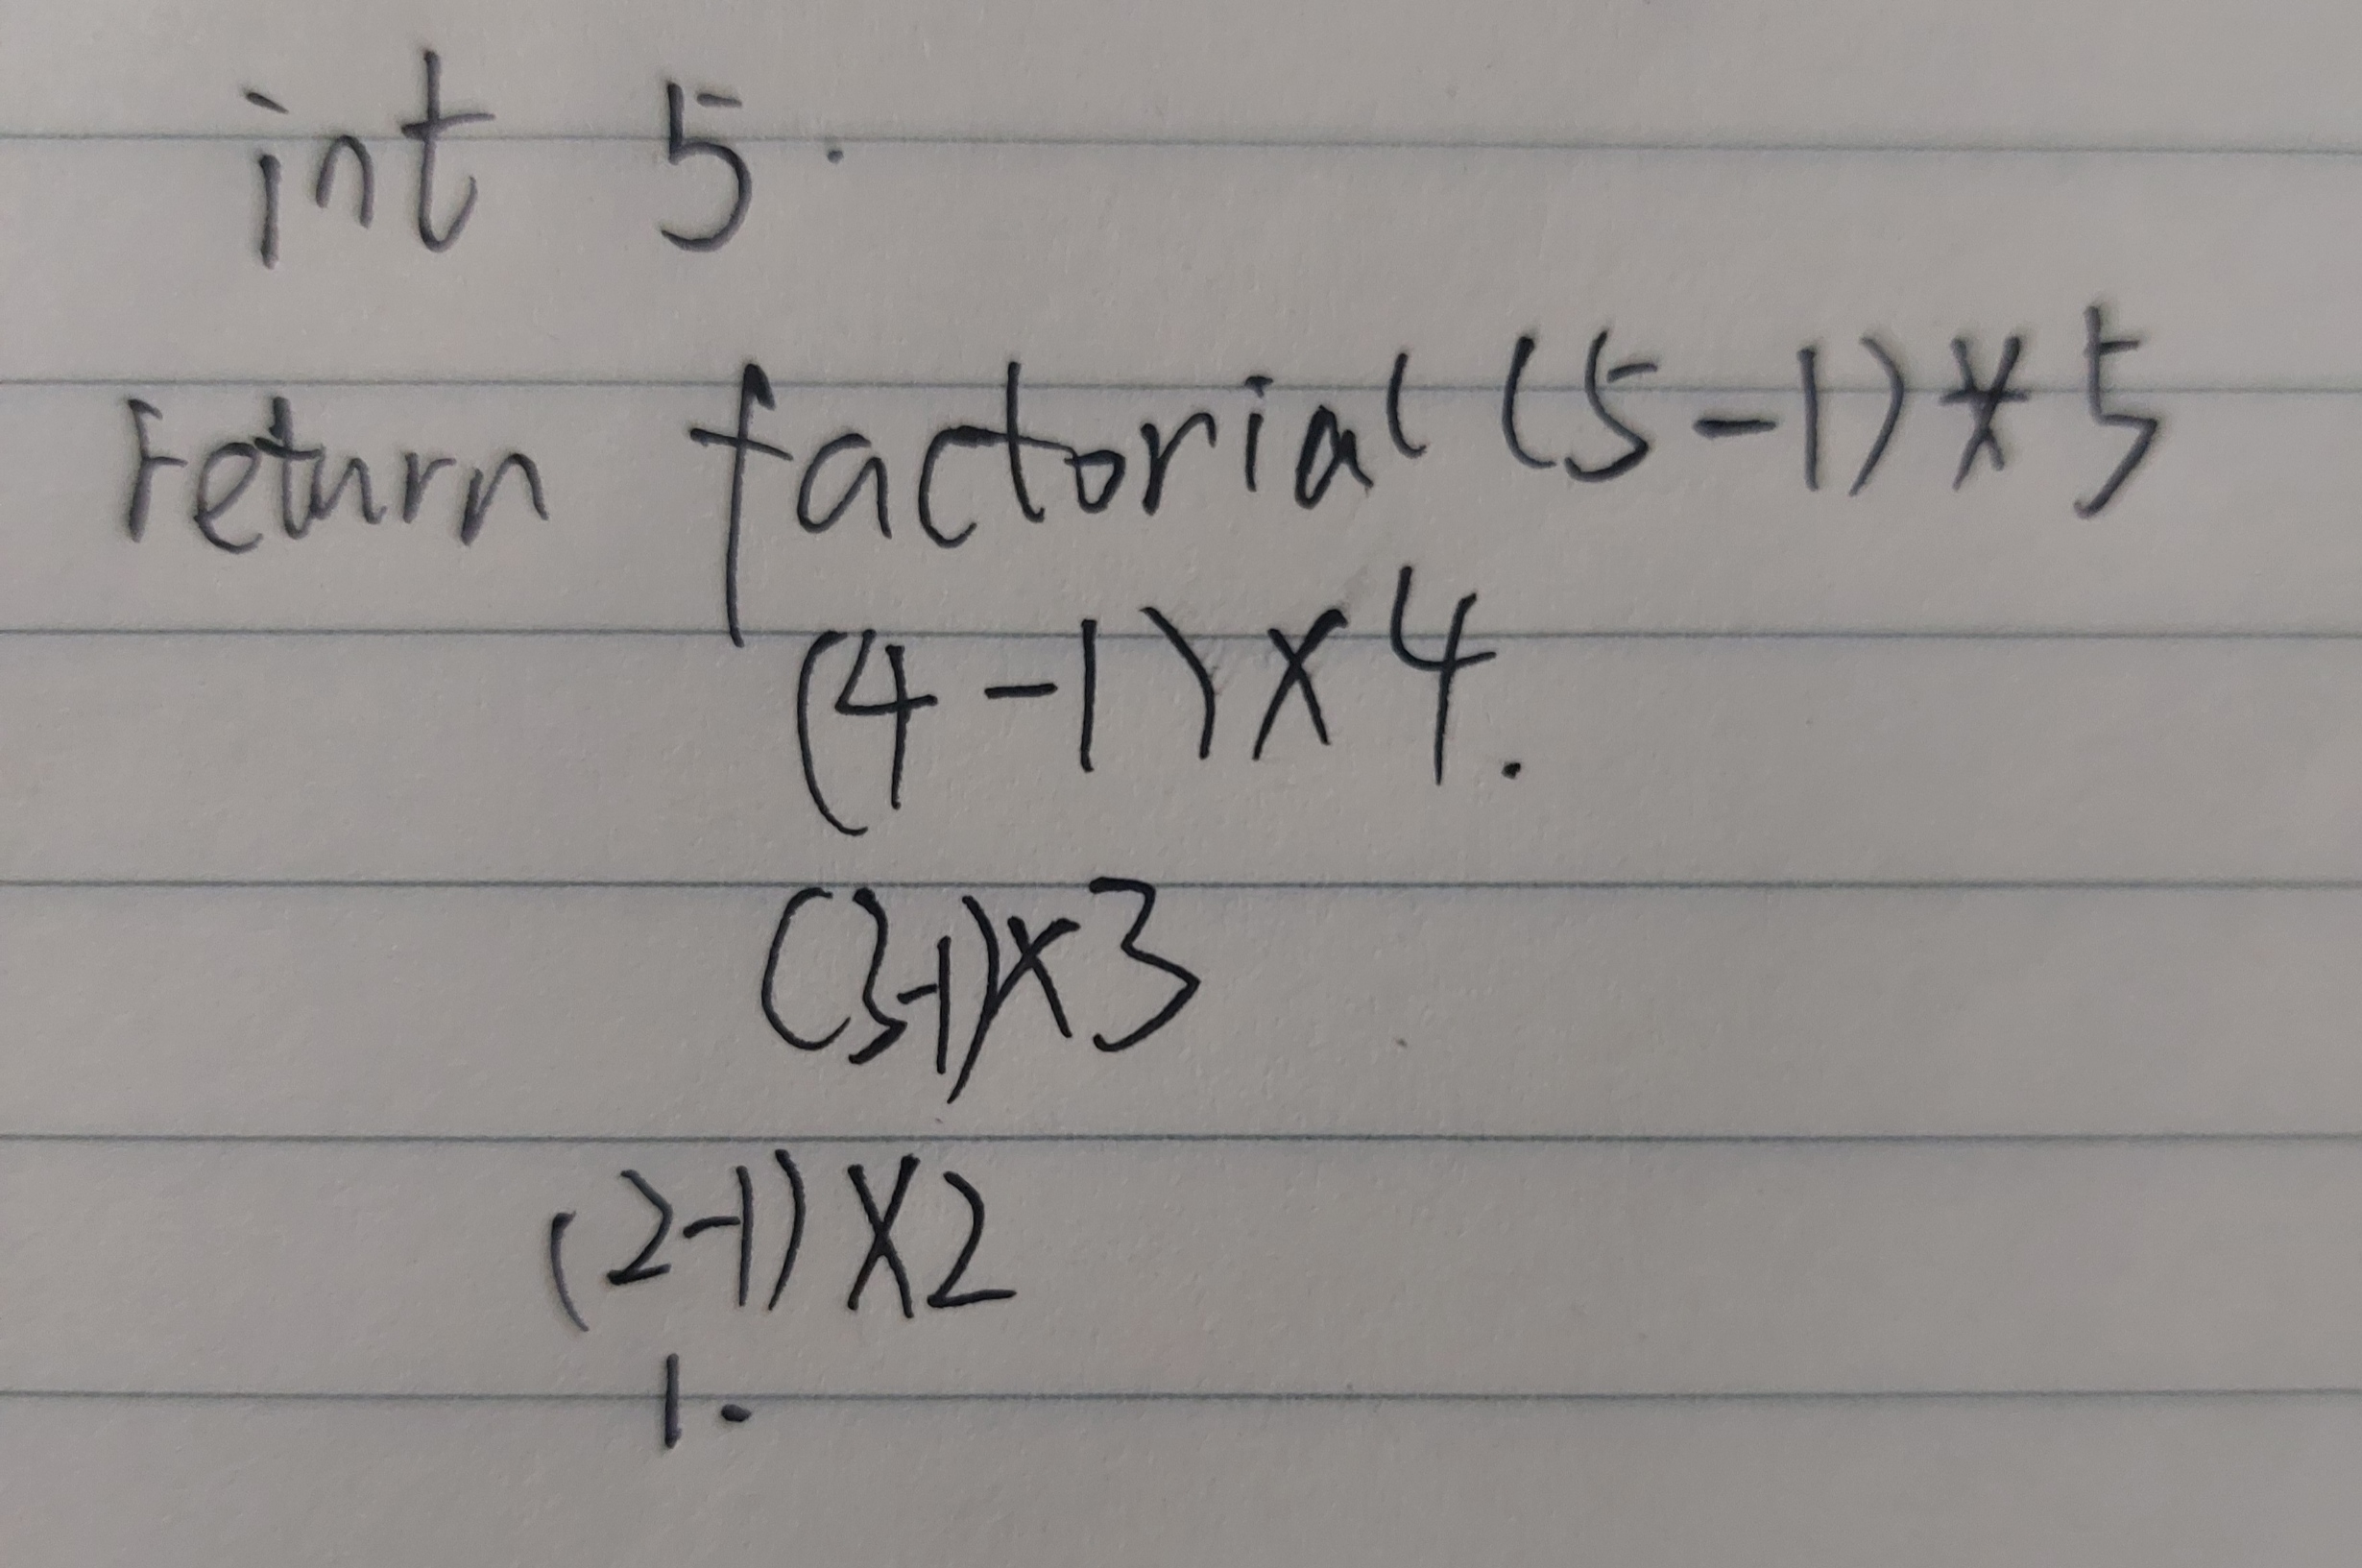 int 5.
return factorial (5-1)*5
(4-1)×4.
(3-1)×3
(2-1)×2
1.